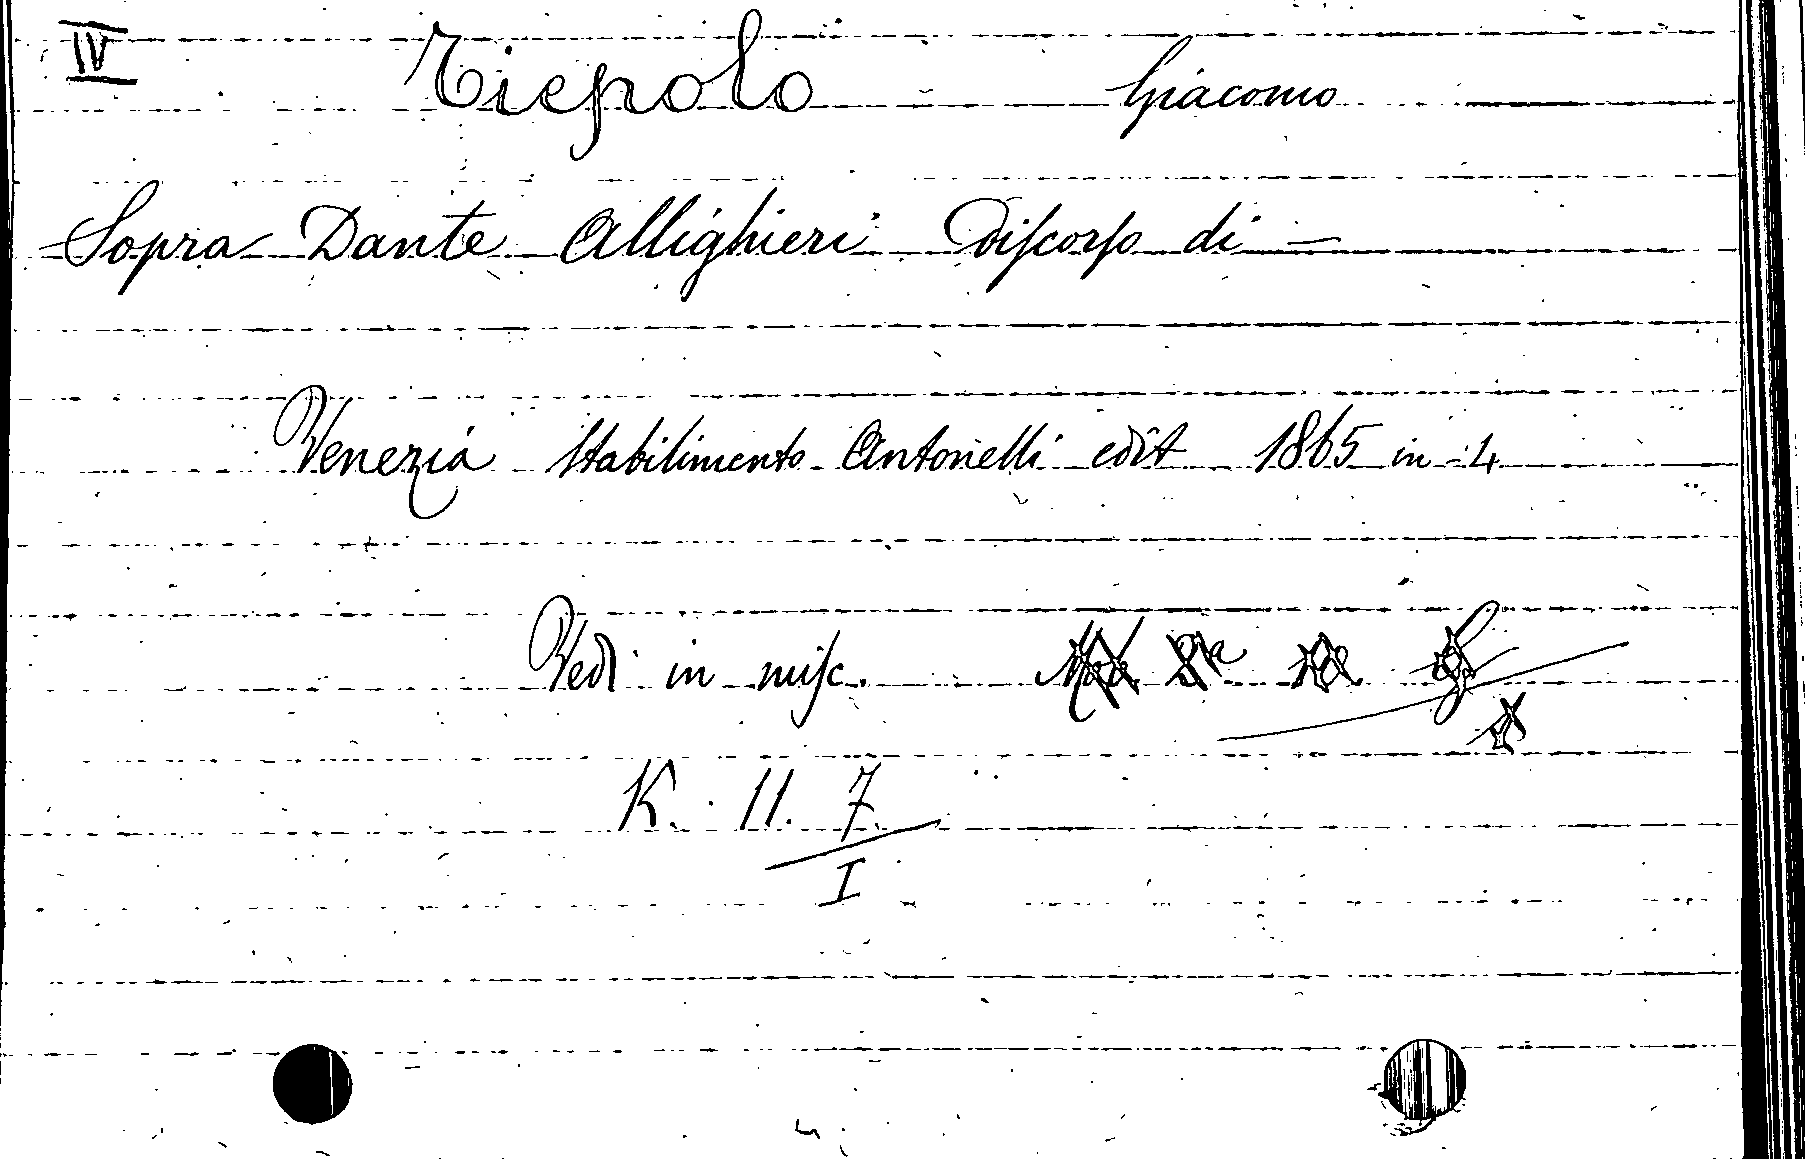 IV Tiepolo Giacomo
Sopra Dante Allighieri Discorso di —
Venezia Stabilimento Antonelli edit 1865 in 4
Vedi in misc.
K. 11. 7
I